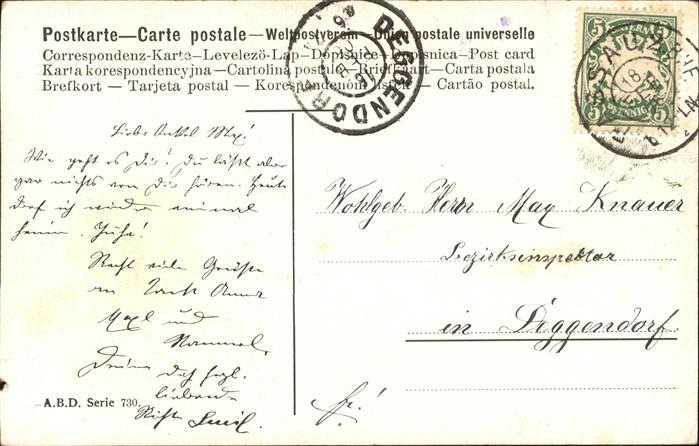 Postkarte—Carte postale—Weltpostverein—Union postale universelle
Correspondenz-Karte—Levelező-Lap—Dopisnice—Dopisnica—Post card
Karta korespondencyjna—Cartolina postale—Briefkaart—Carta postala
Brefkort — Tarjeta postal — Korespondenčni listek — Cartão postal.
DEGGENDORF
PASSAU 2
BAYERN
5 5
PFENNIG
5 5
Lieber Onkel Max!
Wie geht es Dir? Du läßt aber
gar nichts von Dir hören. Heute
darf ich wieder einmal
heim. Juhu!
Recht viele Grüße
an Tante Anna
Maxl und
Deine Dich herzl.
liebende
Nichte
Wohlgeb. Herrn Max Knauer
Bezirksinspektor
in Deggendorf
fr.!
A.B.D. Serie 730.